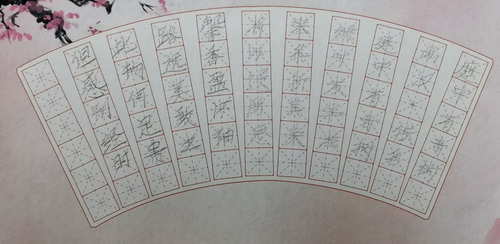 庭中有奇树
庭中有奇树
绿叶发华滋
攀条折其荣
将以遗所思
馨香盈怀袖
路远莫致之
此物何足贵
但感别经时